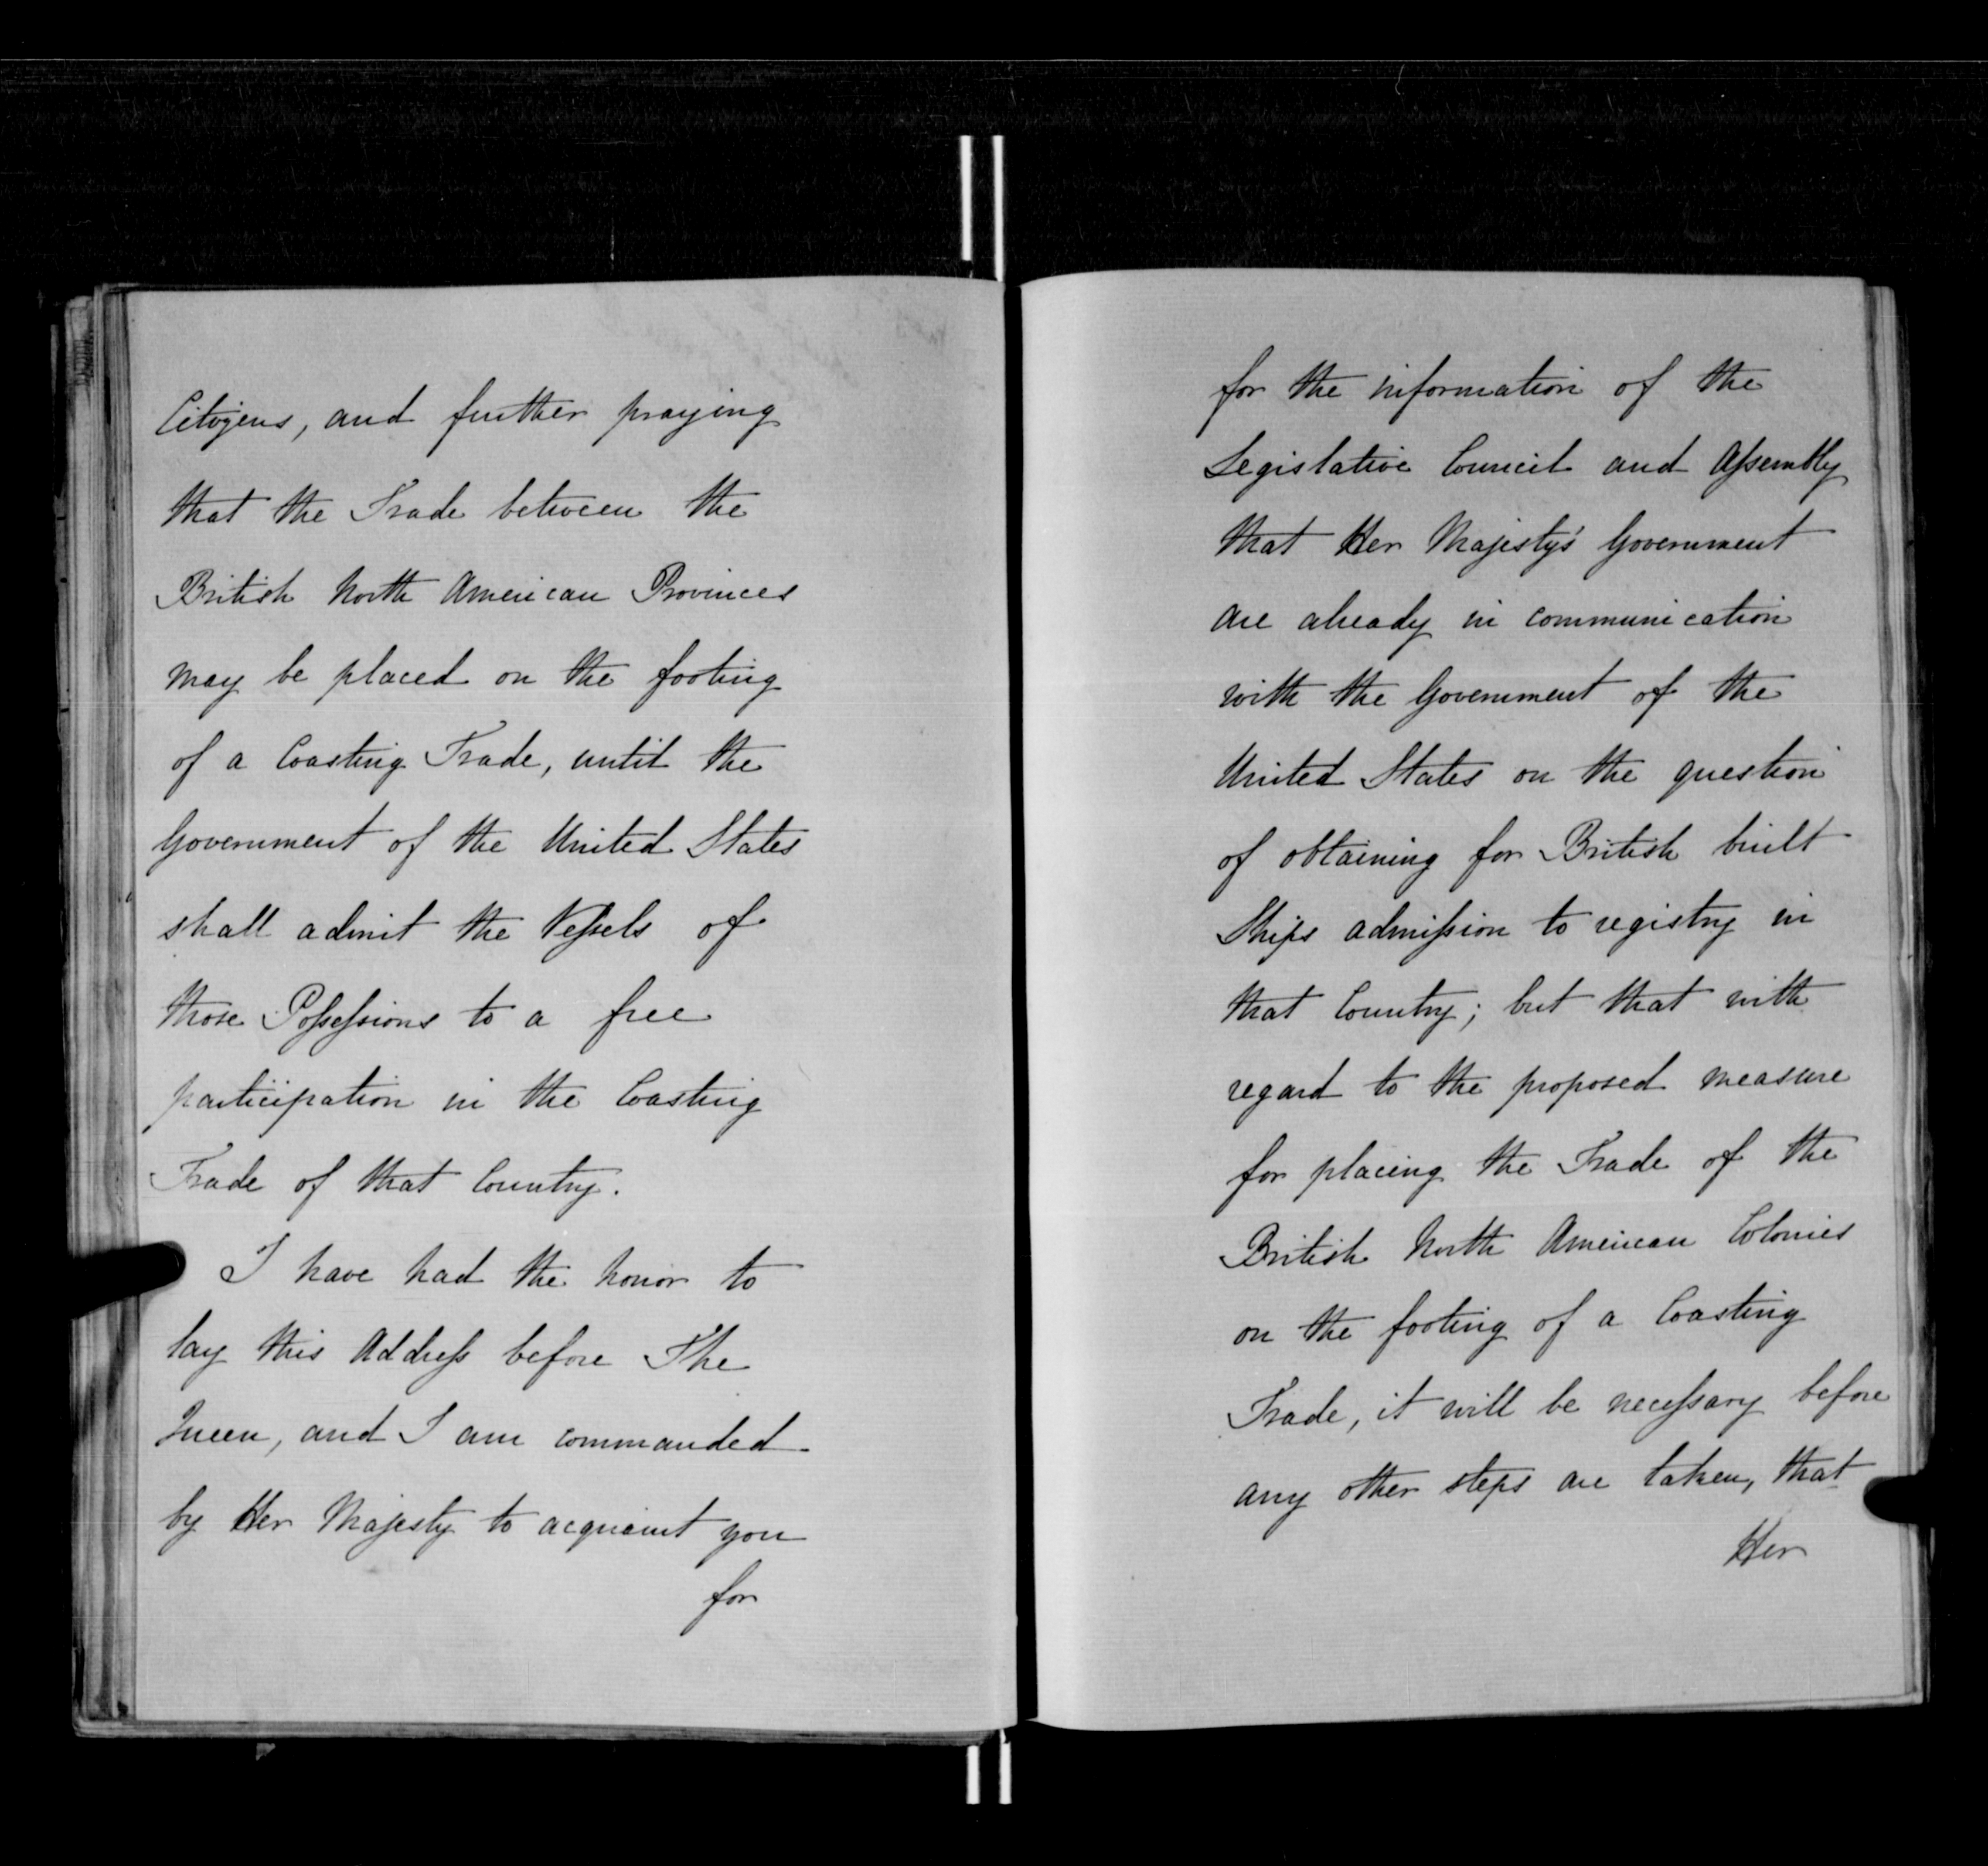 Citizens, and further praying
that the Trade between the
British North American Provinces
may be placed on the footing
of a Coasting Trade, until the
Government of the United States
shall admit the Vessels of
those Possessions to a free
participation in the Coasting
Trade of that Country.
I have had the honor to
lay this Address before The
Queen, and I am commanded
by Her Majesty to acquaint you
for
for the information of the
Legislative Council and Assembly
that Her Majesty's Government
are already in communication
with the Government of the
United States on the question
of obtaining for British built
Ships admission to registry in
that Country; but that with
regard to the proposed measure
for placing the Trade of the
British North American Colonies
on the footing of a Coasting
Trade, it will be necessary before
any other steps are taken, that
Her